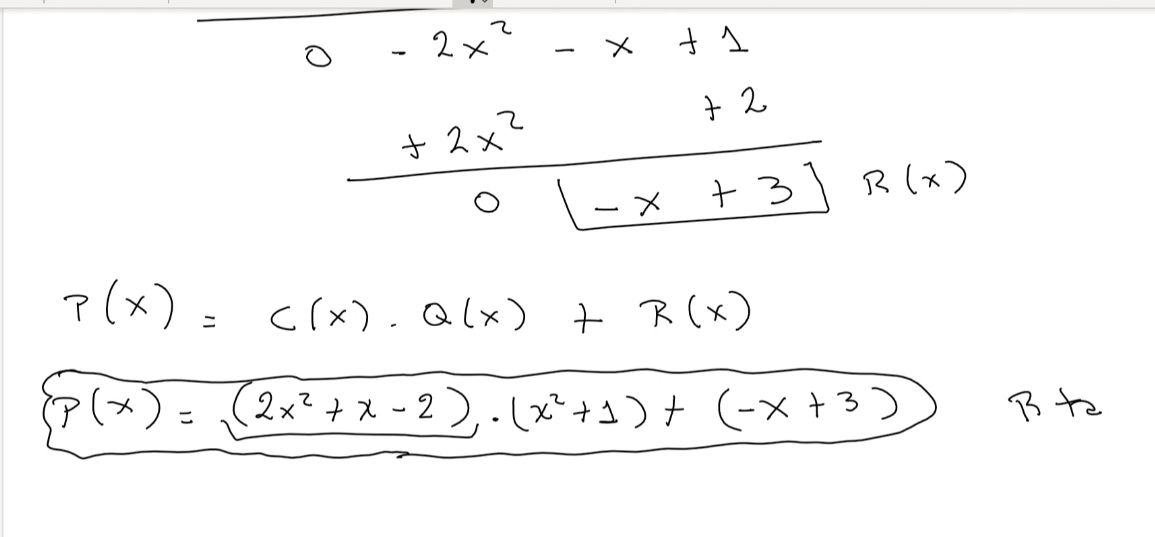 0 - 2x² - x + 1
+ 2x² + 2
0 - x + 3 R(x)
P(x) = C(x) . Q(x) + R(x)
P(x) = (2x² + x - 2) . (x² + 1) + (-x + 3) Rta